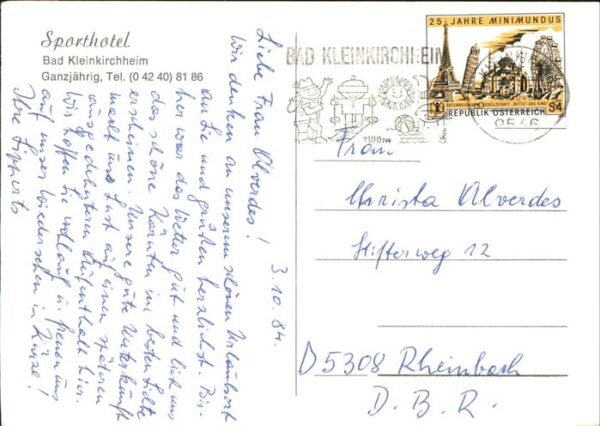 Sporthotel
Bad Kleinkirchheim
Ganzjährig, Tel. (0 42 40) 81 86
3.10.84.
Liebe Frau Alverdes!
Wir denken an unserem schönen Urlaubsort
an Sie und grüßen herzlichst. Bis-
her war das Wetter gut und ließ uns
das schöne Kärnten im besten Lichte
erscheinen. Unsere gute Unterkunft
macht uns Lust auf einen späteren
ausgedehnteren Aufenthalt hier.
Wir hoffen Sie wohlauf u. freuen uns
auf unser Wiedersehen in Kürze!
Ihre
BAD KLEINKIRCHHEIM
1100m
25 JAHRE MINIMUNDUS
ÖSTERREICHISCHE GESELLSCHAFT "RETTET DAS KIND"
REPUBLIK ÖSTERREICH
S4
9546
Frau
Christa Alverdes
Stifterweg 12
D 5308 Rheinbach
D. B. R.